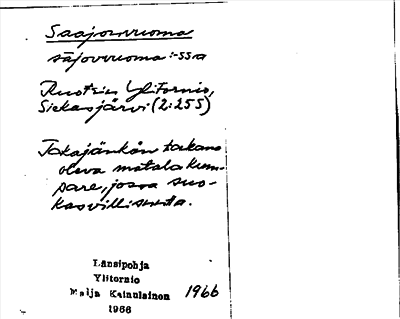 Saajovuoma
säjovvuoma :-ssa
Ruotsin Ylitornio,
Siekasjärvi (2:255)
Takajänkän takana
oleva matala kum-
pare, jossa suo-
kasvillisuutta.
Länsipohja
Ylitornio
Maija Kainulainen 1966
1966